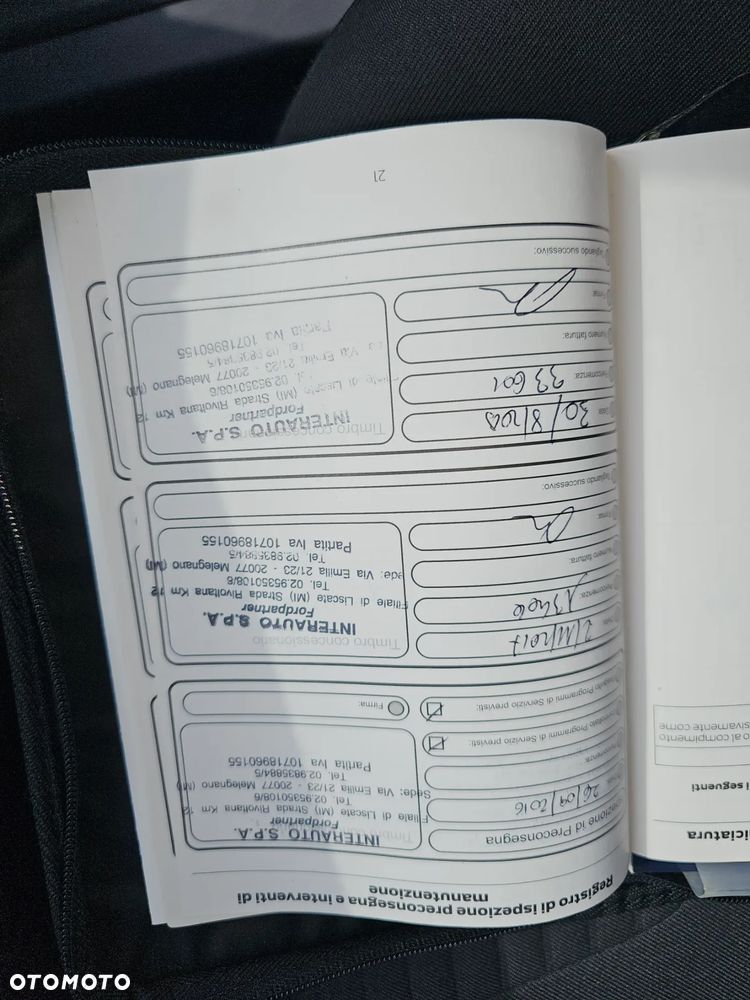 Registro di ispezione preconsegna e interventi di
manutenzione
Ispezione id Preconsegna
26/09/2016
Percorrenza:
Programmi di Servizio previsti:
Programmi di Servizio previsti:
Firma:
INTERAUTO S.P.A.
Fordpartner
Filiale di Liscate (MI) Strada Rivoltana Km 12
Tel. 02.95350108/6
Sede: Via Emilia 21/23 - 20077 Melegnano (MI)
Tel. 02.983584/5
Partita Iva 10718960155
Data:
Percorrenza:
Numero fattura:
Firma:
Tagliando successivo:
Timbro concessionario
INTERAUTO S.P.A.
Fordpartner
Filiale di Liscate (MI) Strada Rivoltana Km 12
Tel. 02.95350108/6
Sede: Via Emilia 21/23 - 20077 Melegnano (MI)
Tel. 02.983584/5
Partita Iva 10718960155
Data:
30/8/
Percorrenza:
33601
Numero fattura:
Firma:
Tagliando successivo:
Timbro concessionario
INTERAUTO S.P.A.
Fordpartner
Filiale di Liscate (MI) Strada Rivoltana Km 12
02.95350108/6
Via Emilia 21/23 - 20077 Melegnano (MI)
Tel. 02.983584/5
Partita Iva 10718960155
21
iciatura
i seguenti
o al compimento
sivamente come
OTOMOTO